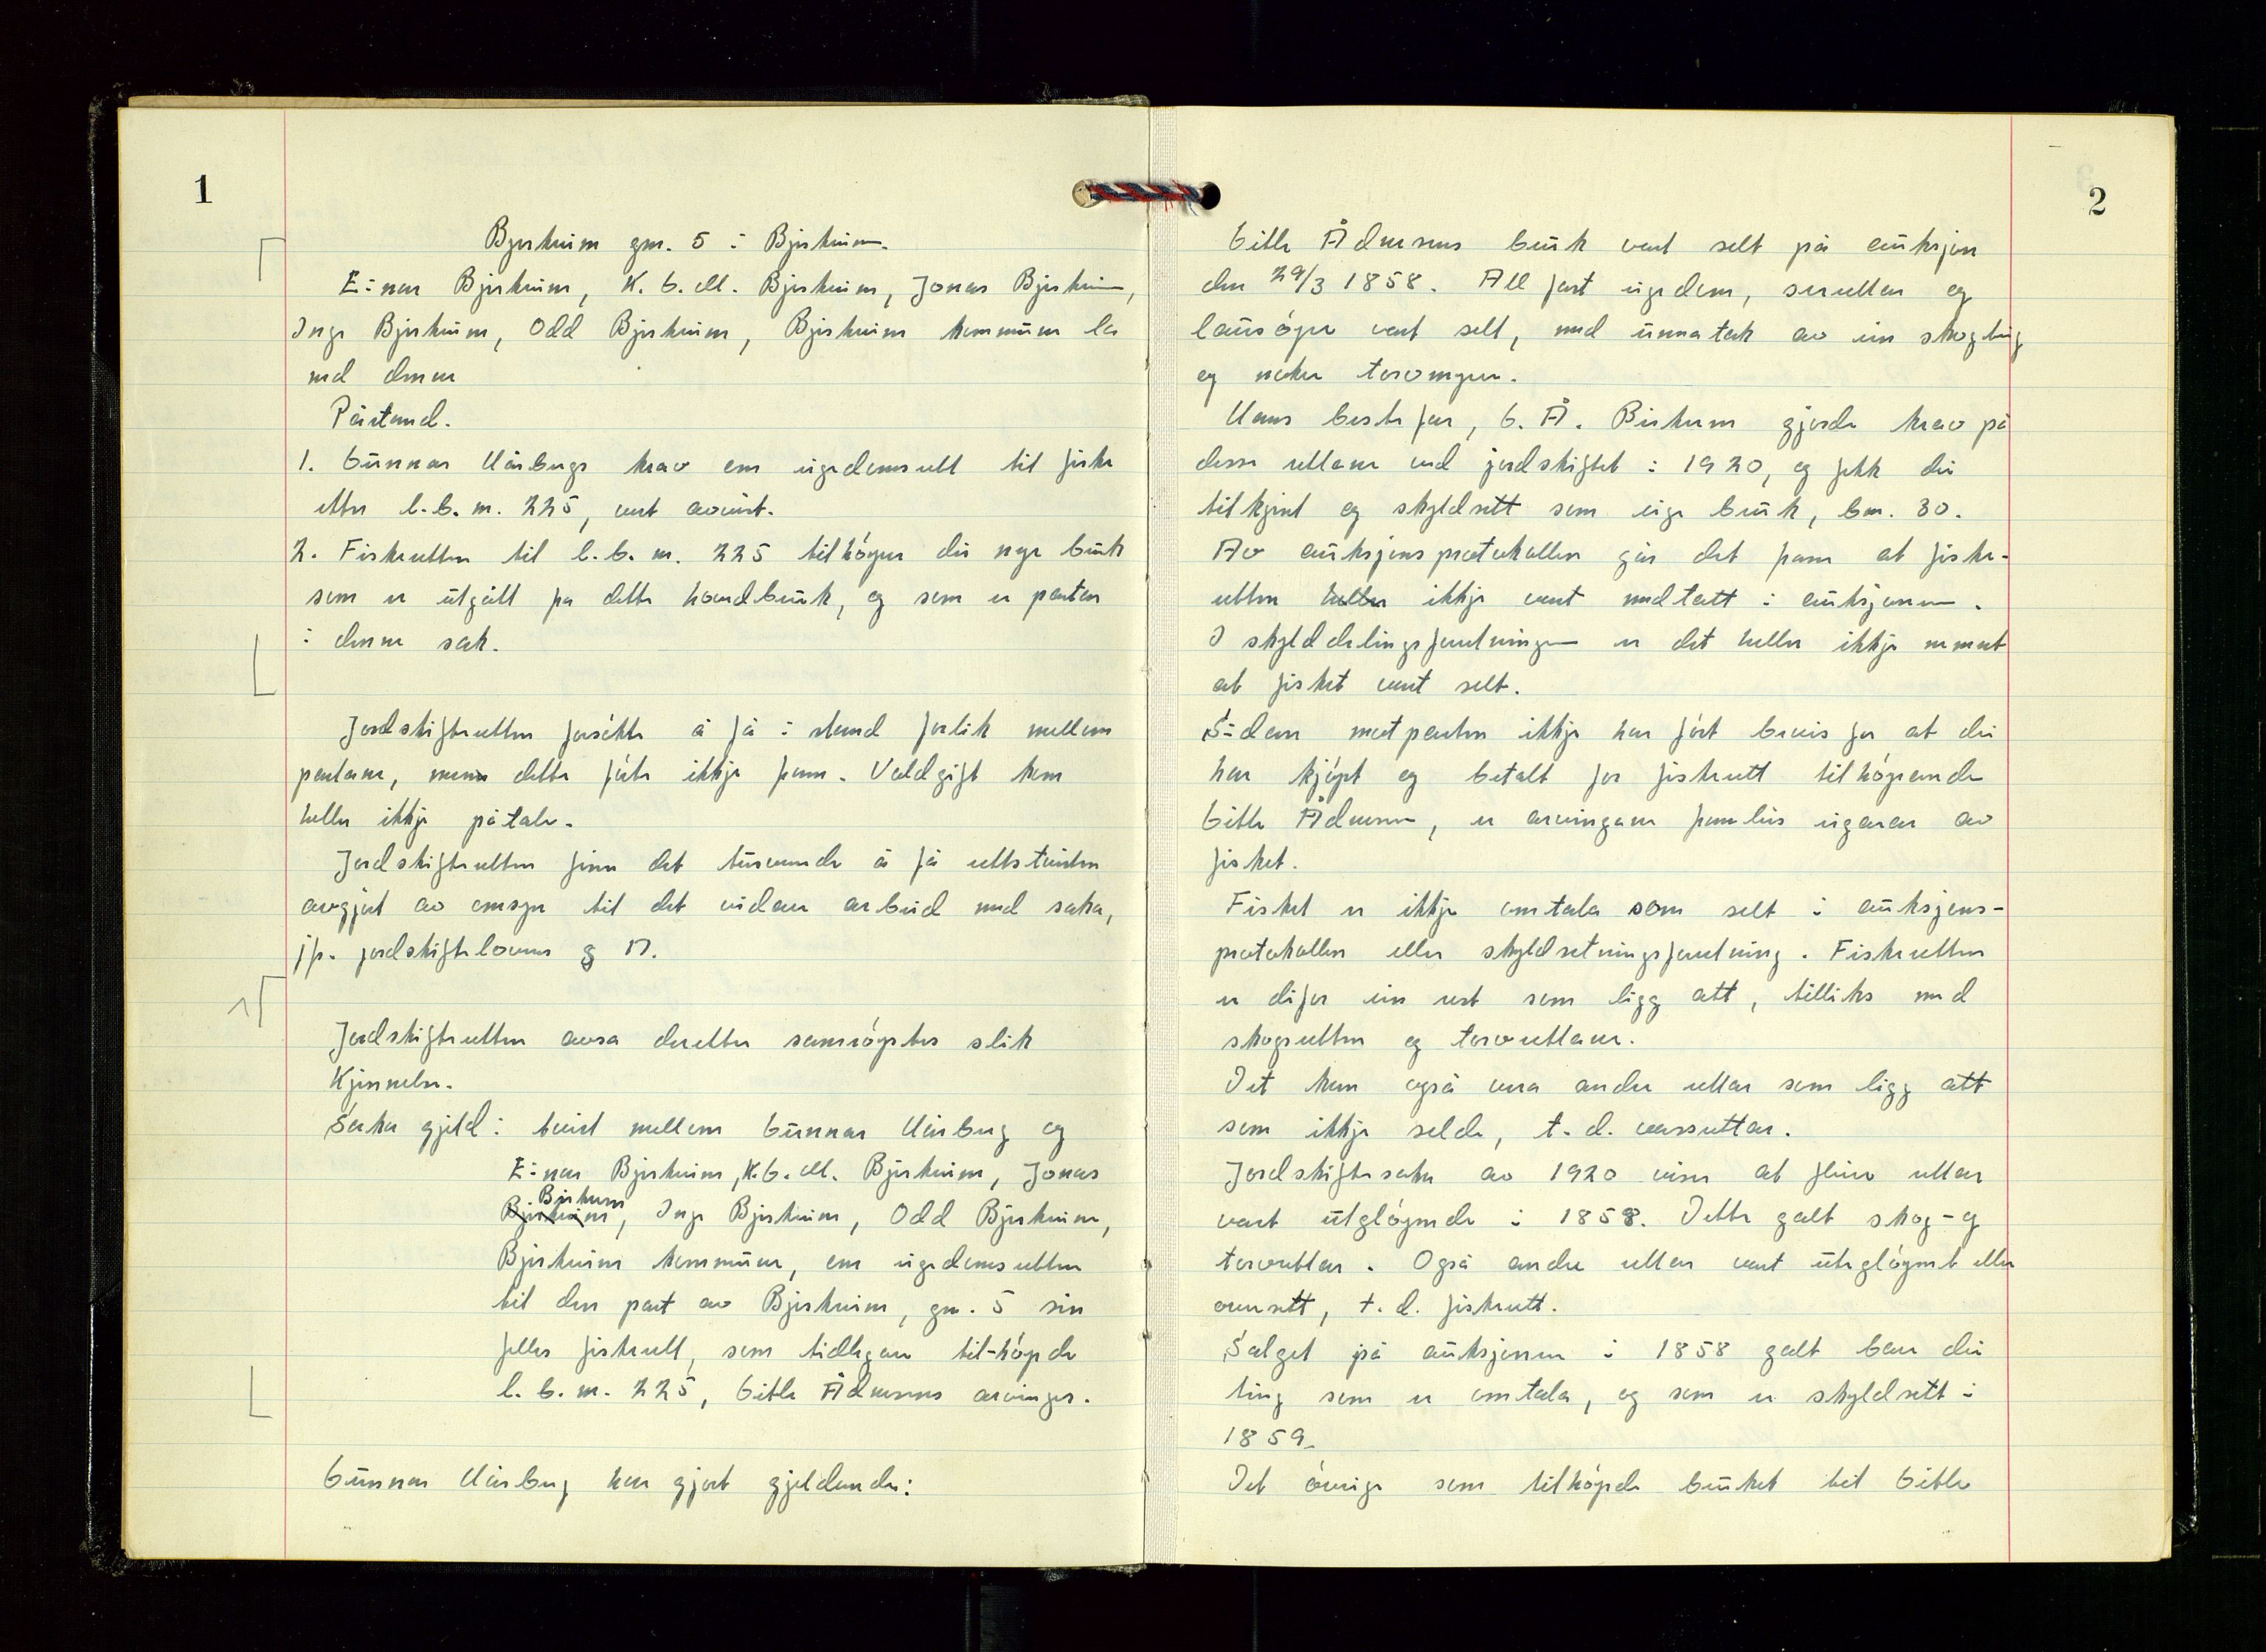 1
Bjerkreim gnr. 5 i Bjerkreim.
Einar Bjerkreim, K. G. M. Bjerkreim, Jonas Bjerkreim,
Inge Bjerkreim, Odd Bjerkreim, Bjerkreim kommune la
ned denne
Påstand.
1. Gunnar Hårbergs krav om eigedomsrett til fiske
etter l.b.nr. 225, vert avvist.
2. Fiskeretten til l.b.nr. 225 tilhøyrer dei nye bruk
som er utgått fra dette hovedbruk, og som er partar
i denne sak.
Jordskifteretten forsøkte å få i stand forlik mellom
partane, menn dette førte ikkje fram. Valdgift kom
heller ikkje på tale.
Jordskifteretten finn det turvande å få rettstvisten
avgjort av omsyn til det vidare arbeid med saka,
jfr. jordskiftelovens § 17.
Jordskifteretten avsa deretter samrøystes slik
Kjennelse.
Saka gjeld: tvist mellom Gunnar Hårberg og
Einar Bjerkreim, K.G.M. Bjerkreim, Jonas
Birkrem
Bjerkreim, Inge Bjerkreim, Odd Bjerkreim,
Bjerkreim kommune, om eigedomsretten
til den part av Bjerkreim, gnr. 5 sin
felles fiskerett, som tidlegare til-høyrde
l.b.nr. 225, Gitle Ådnesens arvinger.
Gunnar Hårberg har gjort gjeldande:
2
Gitle Ådnesens bruk vart selt på auksjon
den 29/3 1858. All fast eigedom, seretter og
lausøyre vart selt, med unnatak av ein skogteig
og nokre torvmyrer.
Hans bestefar, G. Å. Birkrem gjorde krav på
desse rettane ved jordskiftet i 1920, og fekk dei
tilkjent og skyldsett som eige bruk, bnr. 30.
Av auksjonsprotokollen går det fram at fiske-
retten heller ikkje vart medtatt i auksjonen.
I skylddelingsforretningen er det heller ikkje nemnt
at fisket vart selt.
Sidan motparten ikkje har ført bevis for at dei
har kjøpt og betalt for fiskerett tilhøyrande
Gitle Ådnesen, er arvingane framleis eigarar av
fisket.
Fisket er ikkje omtala som selt i auksjons-
protokollen eller skyldsetningsforretning. Fiskeretten
er difor ein rest som ligg att, tilliks med
skogretten og torvrettane.
Det kan også vera andre rettar som ligg att
som ikkje selde, t.d. vassrettar.
Jordskiftesaka av 1920 viser at fleire rettar
vart utgløymde i 1858. Dette galt skog- og
torvrettar. Også andre rettar vart utegløymt eller
oversett, t.d. fiskerett.
Salget på auksjonen i 1858 galt bare dei
ting som er omtala, og som er skyldsett i
1859.
Det øvrige som tilhøyrde bruket til Gitle